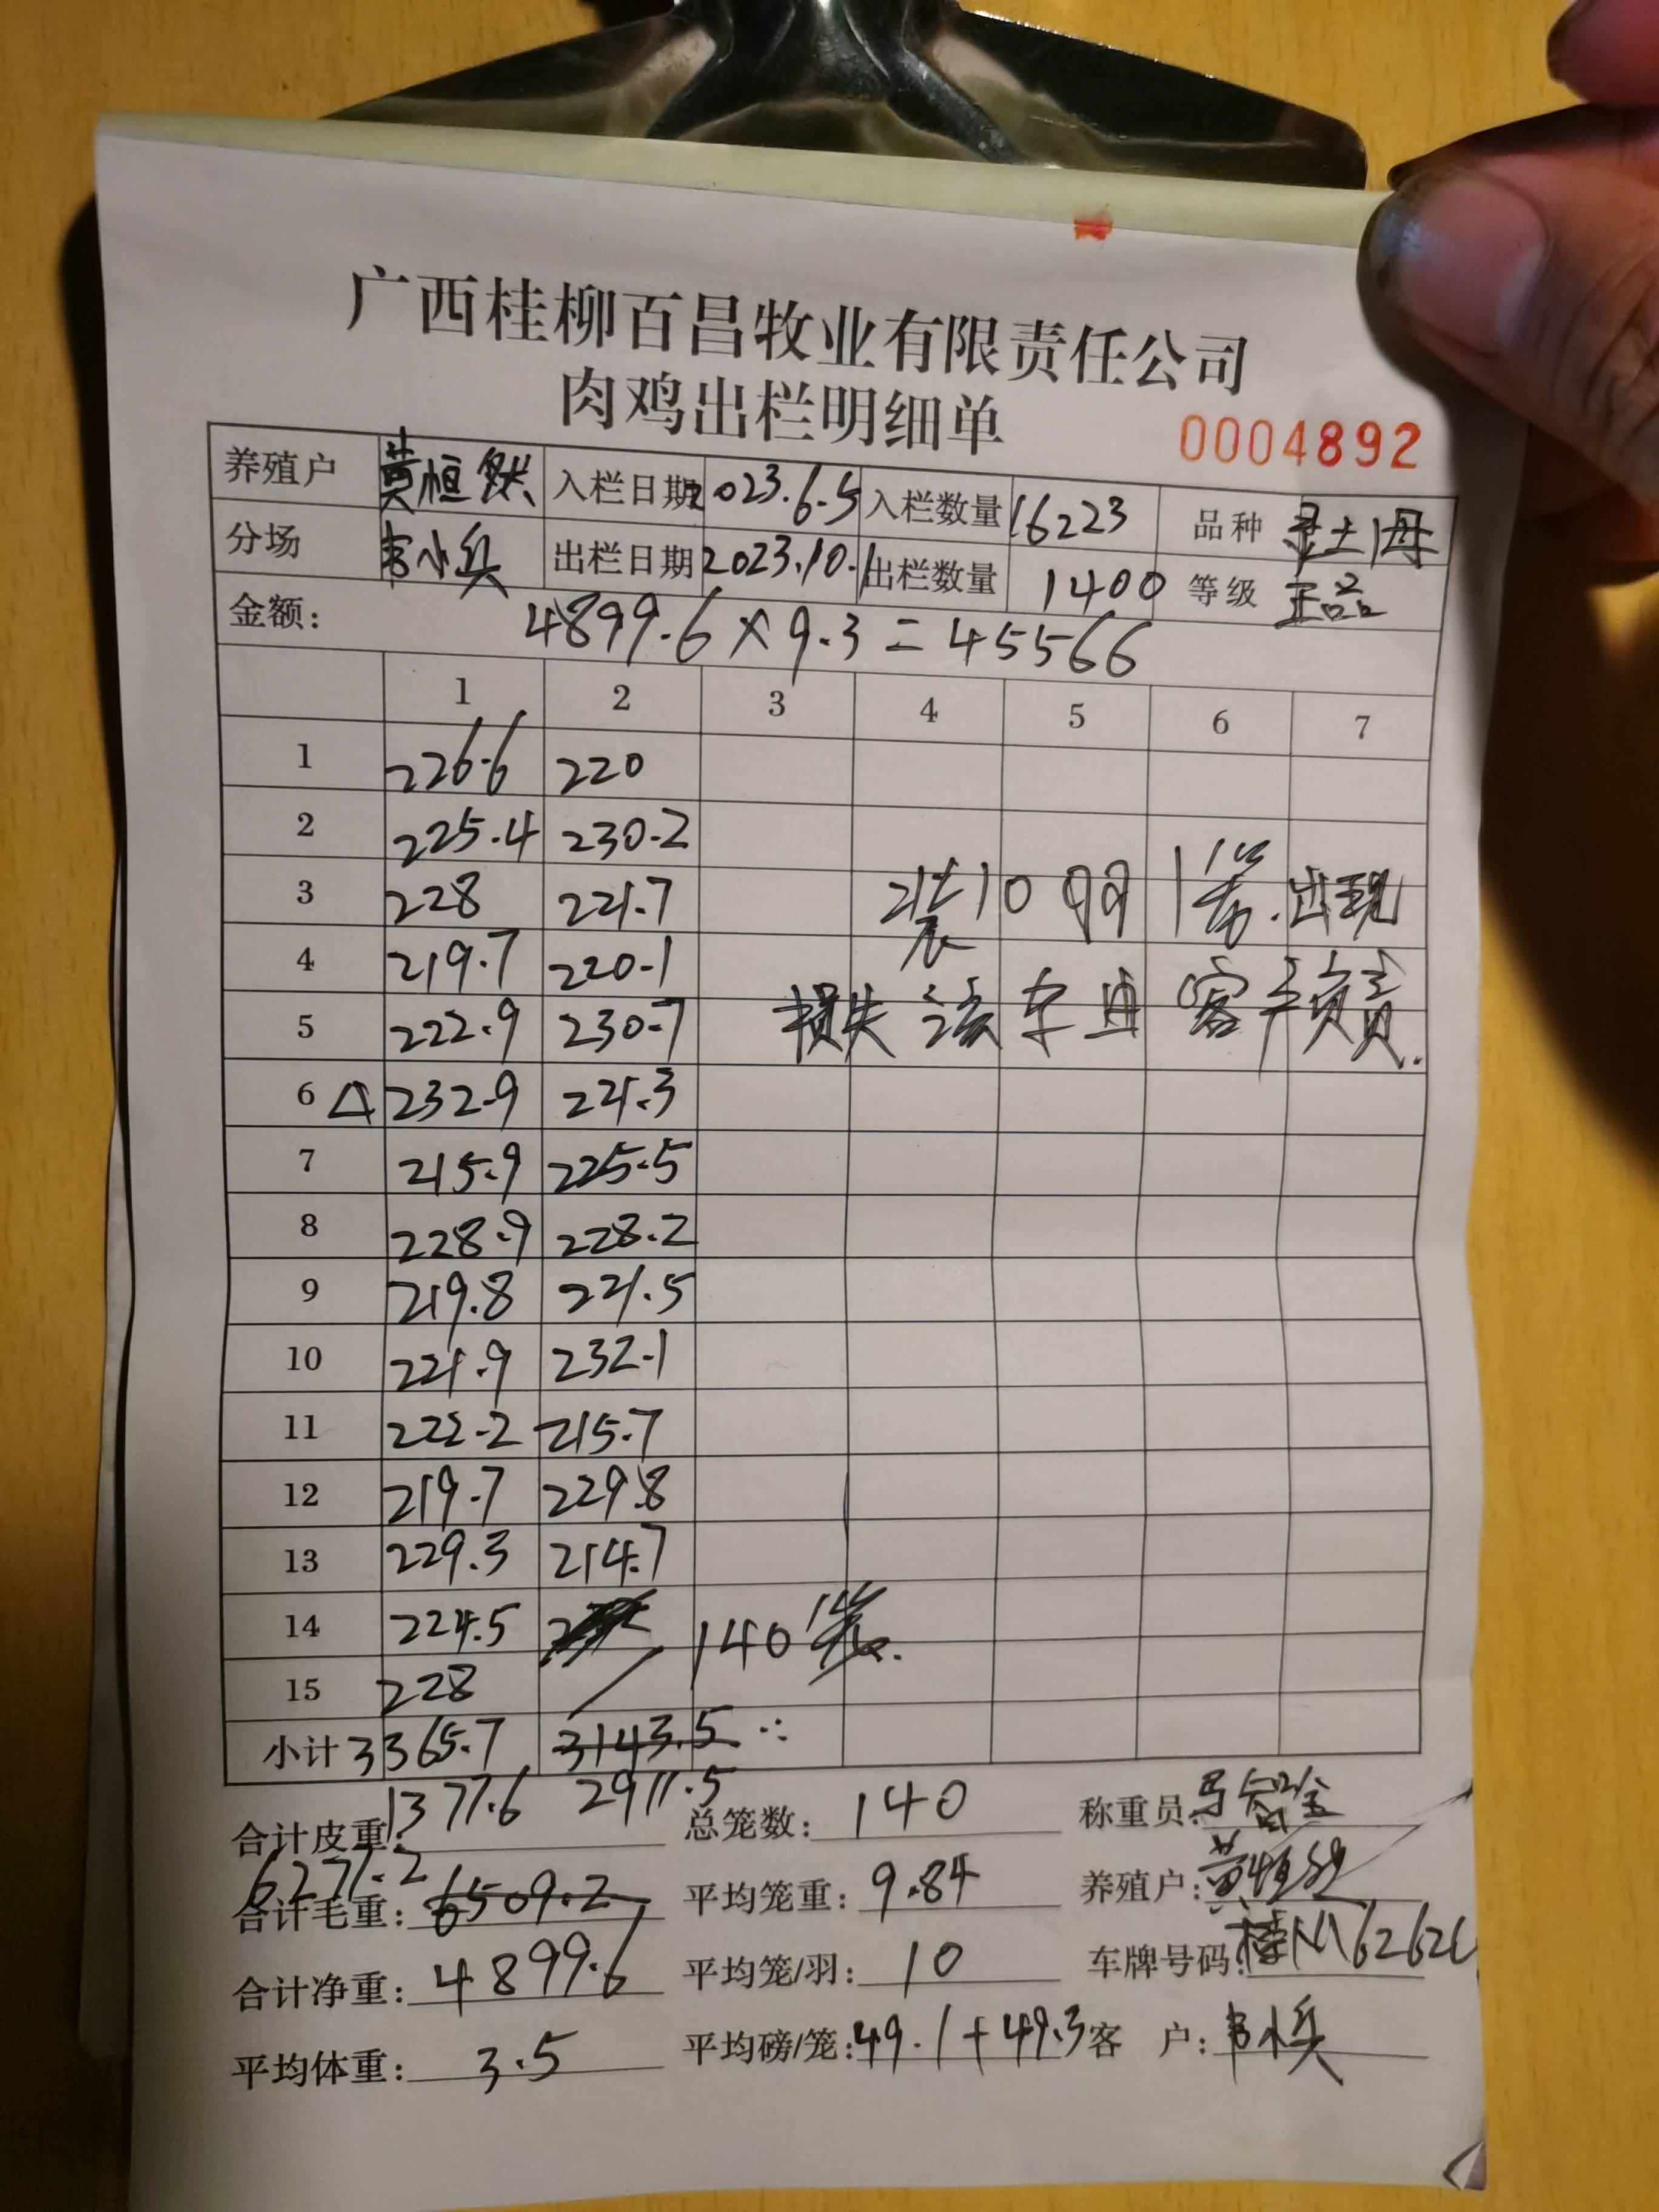 广西桂柳百昌牧业有限责任公司
肉鸡出栏明细单
0004892
养殖户 黄恒 入栏日期 2023.6.5 入栏数量 16223 品种 灵土1母
分场 韦小兵 出栏日期 2023.10.1 出栏数量 1400 等级 正品
金额: 4899.6×9.3=45566
1 2 3 4 5 6 7
1 226.6 220
2 225.4 230.2
3 228 221.7 装10羽1笼.出现
4 219.7 220.1
5 222.9 230.7 损失该车由客户负责.
6 △ 232.9 221.3
7 215.9 225.5
8 228.9 228.2
9 219.8 221.5
10 221.9 232.1
11 222.2 215.7
12 219.7 229.8
13 229.3 214.7
14 224.5 140笼.
15 228
小计 3365.7 3143.5
2911.5
合计皮重: 1377.6 总笼数: 140 称重员:
6277.2
合计毛重: 6509.2 平均笼重: 9.84 养殖户: 黄恒
合计净重: 4899.6 平均笼/羽: 10 车牌号码: 桂
平均体重: 3.5 平均磅/笼: 49.1+49.3 客户: 韦小兵